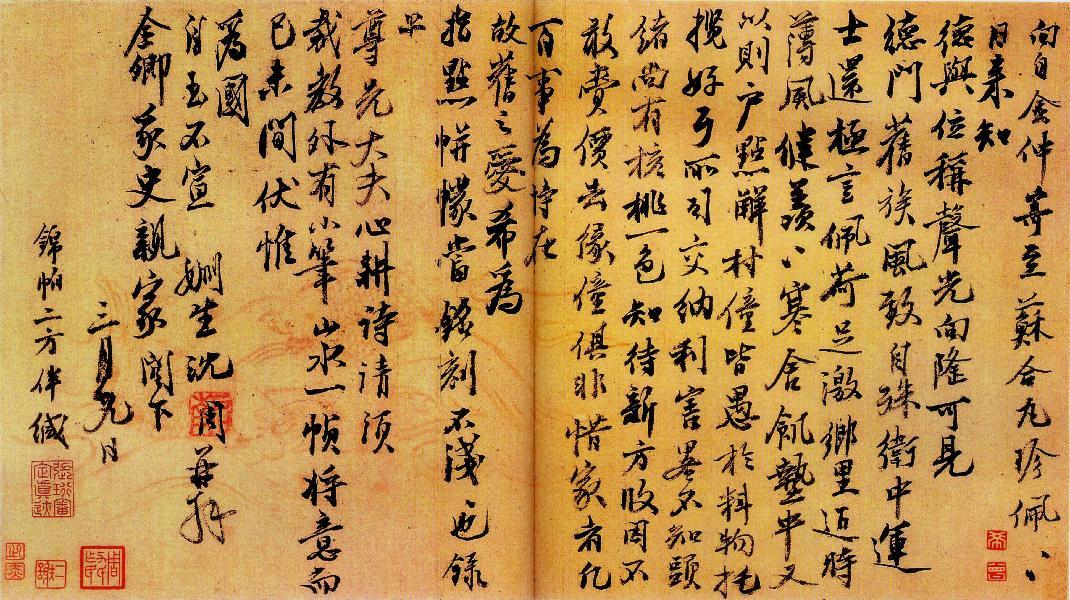 向自金仲等至蘇合丸珍佩、、
日来知
德與位稱聲光向隆可見
德門舊族風致自殊衛中運
士還極言佩荷足激鄉里近時
薄風健羨、、寒舍飢墊中又
以則戶點解村僮皆愚於料物托
攬好了所司交納利害畧不知頭
緒尚有核桃一色知待新方收因不
敢賫價去緣僮俱非惜家者凡
百事為恃在
故舊之愛希為
指點帡幪當銘刻不淺也録
上
尊先大夫心耕詩請須
裁教外有小筆山水一幀将意而
已未間伏惟
為國
自玉不宣 姻生沈周再拜
金卿家史親家閣下
三月九日
錦帕二方伴緘